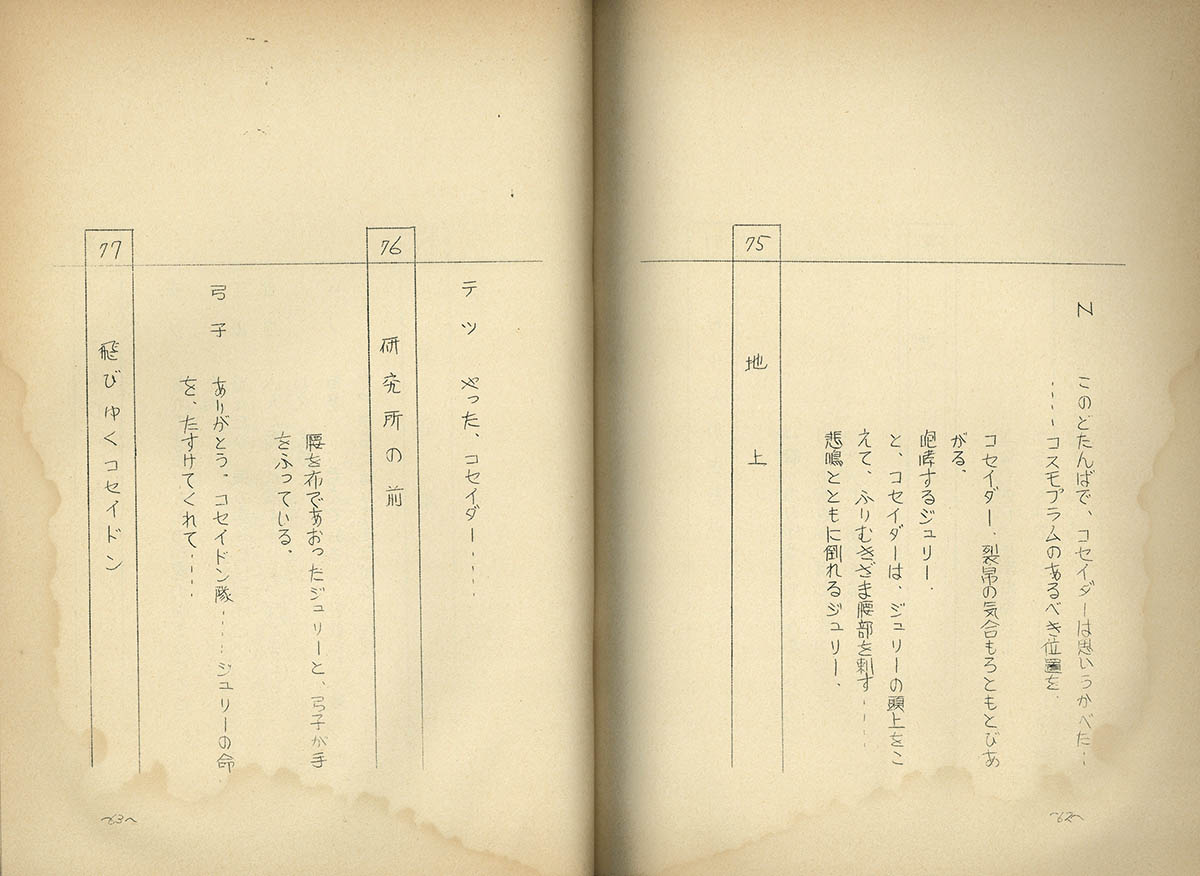 N　このどたんばで、コセイダーは思いうかべた‥
‥‥コスモプラムのあるべき位置を．
コセイダー．裂帛の気合もろともとびあ
がる．
咆哮するジュリー．
と、コセイダーは、ジュリーの頭上をこ
えて、ふりむきざま腰部を刺す‥‥
悲鳴とともに倒れるジュリー．
75　地上
〜62〜
テツ　やった、コセイダー‥‥
76　研究所の前
腰を布であおったジュリーと、弓子が手
をふっている．
弓子　ありがとう。コセイドン隊‥‥‥ジュリーの命
を、たすけてくれて‥‥
77　飛びゆくコセイドン
〜63〜